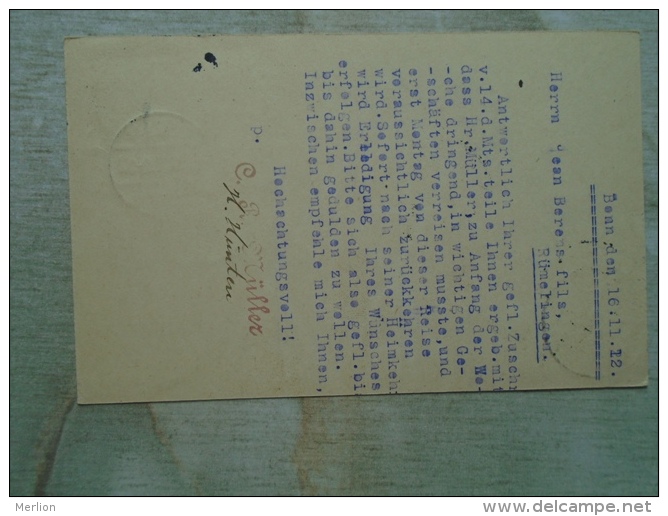 Bonn, den 16.11.12.
Herrn Jean Berens fils,
Rümelingen.
Antwortlich Ihrer gefl. Zuschr
v.14.d.Mts.teile Ihnen ergeb.mit
dass Hr.Müller, zu Anfang der Wo-
-che dringend, in wichtigen Ge-
-schäften verreisen musste, und
erst Montag von dieser Reise
voraussichtlich zurückkehren
wird. Sofort nach seiner Heimkehr
wird Erledigung Ihres Wunsches
erfolgen. Bitte sich also gefl. bis
bis dahin gedulden zu wollen.
Inzwischen empfehle mich Ihnen,
Hochachtungsvoll!
p. C. Müller
Merlion
www.delcampe.net